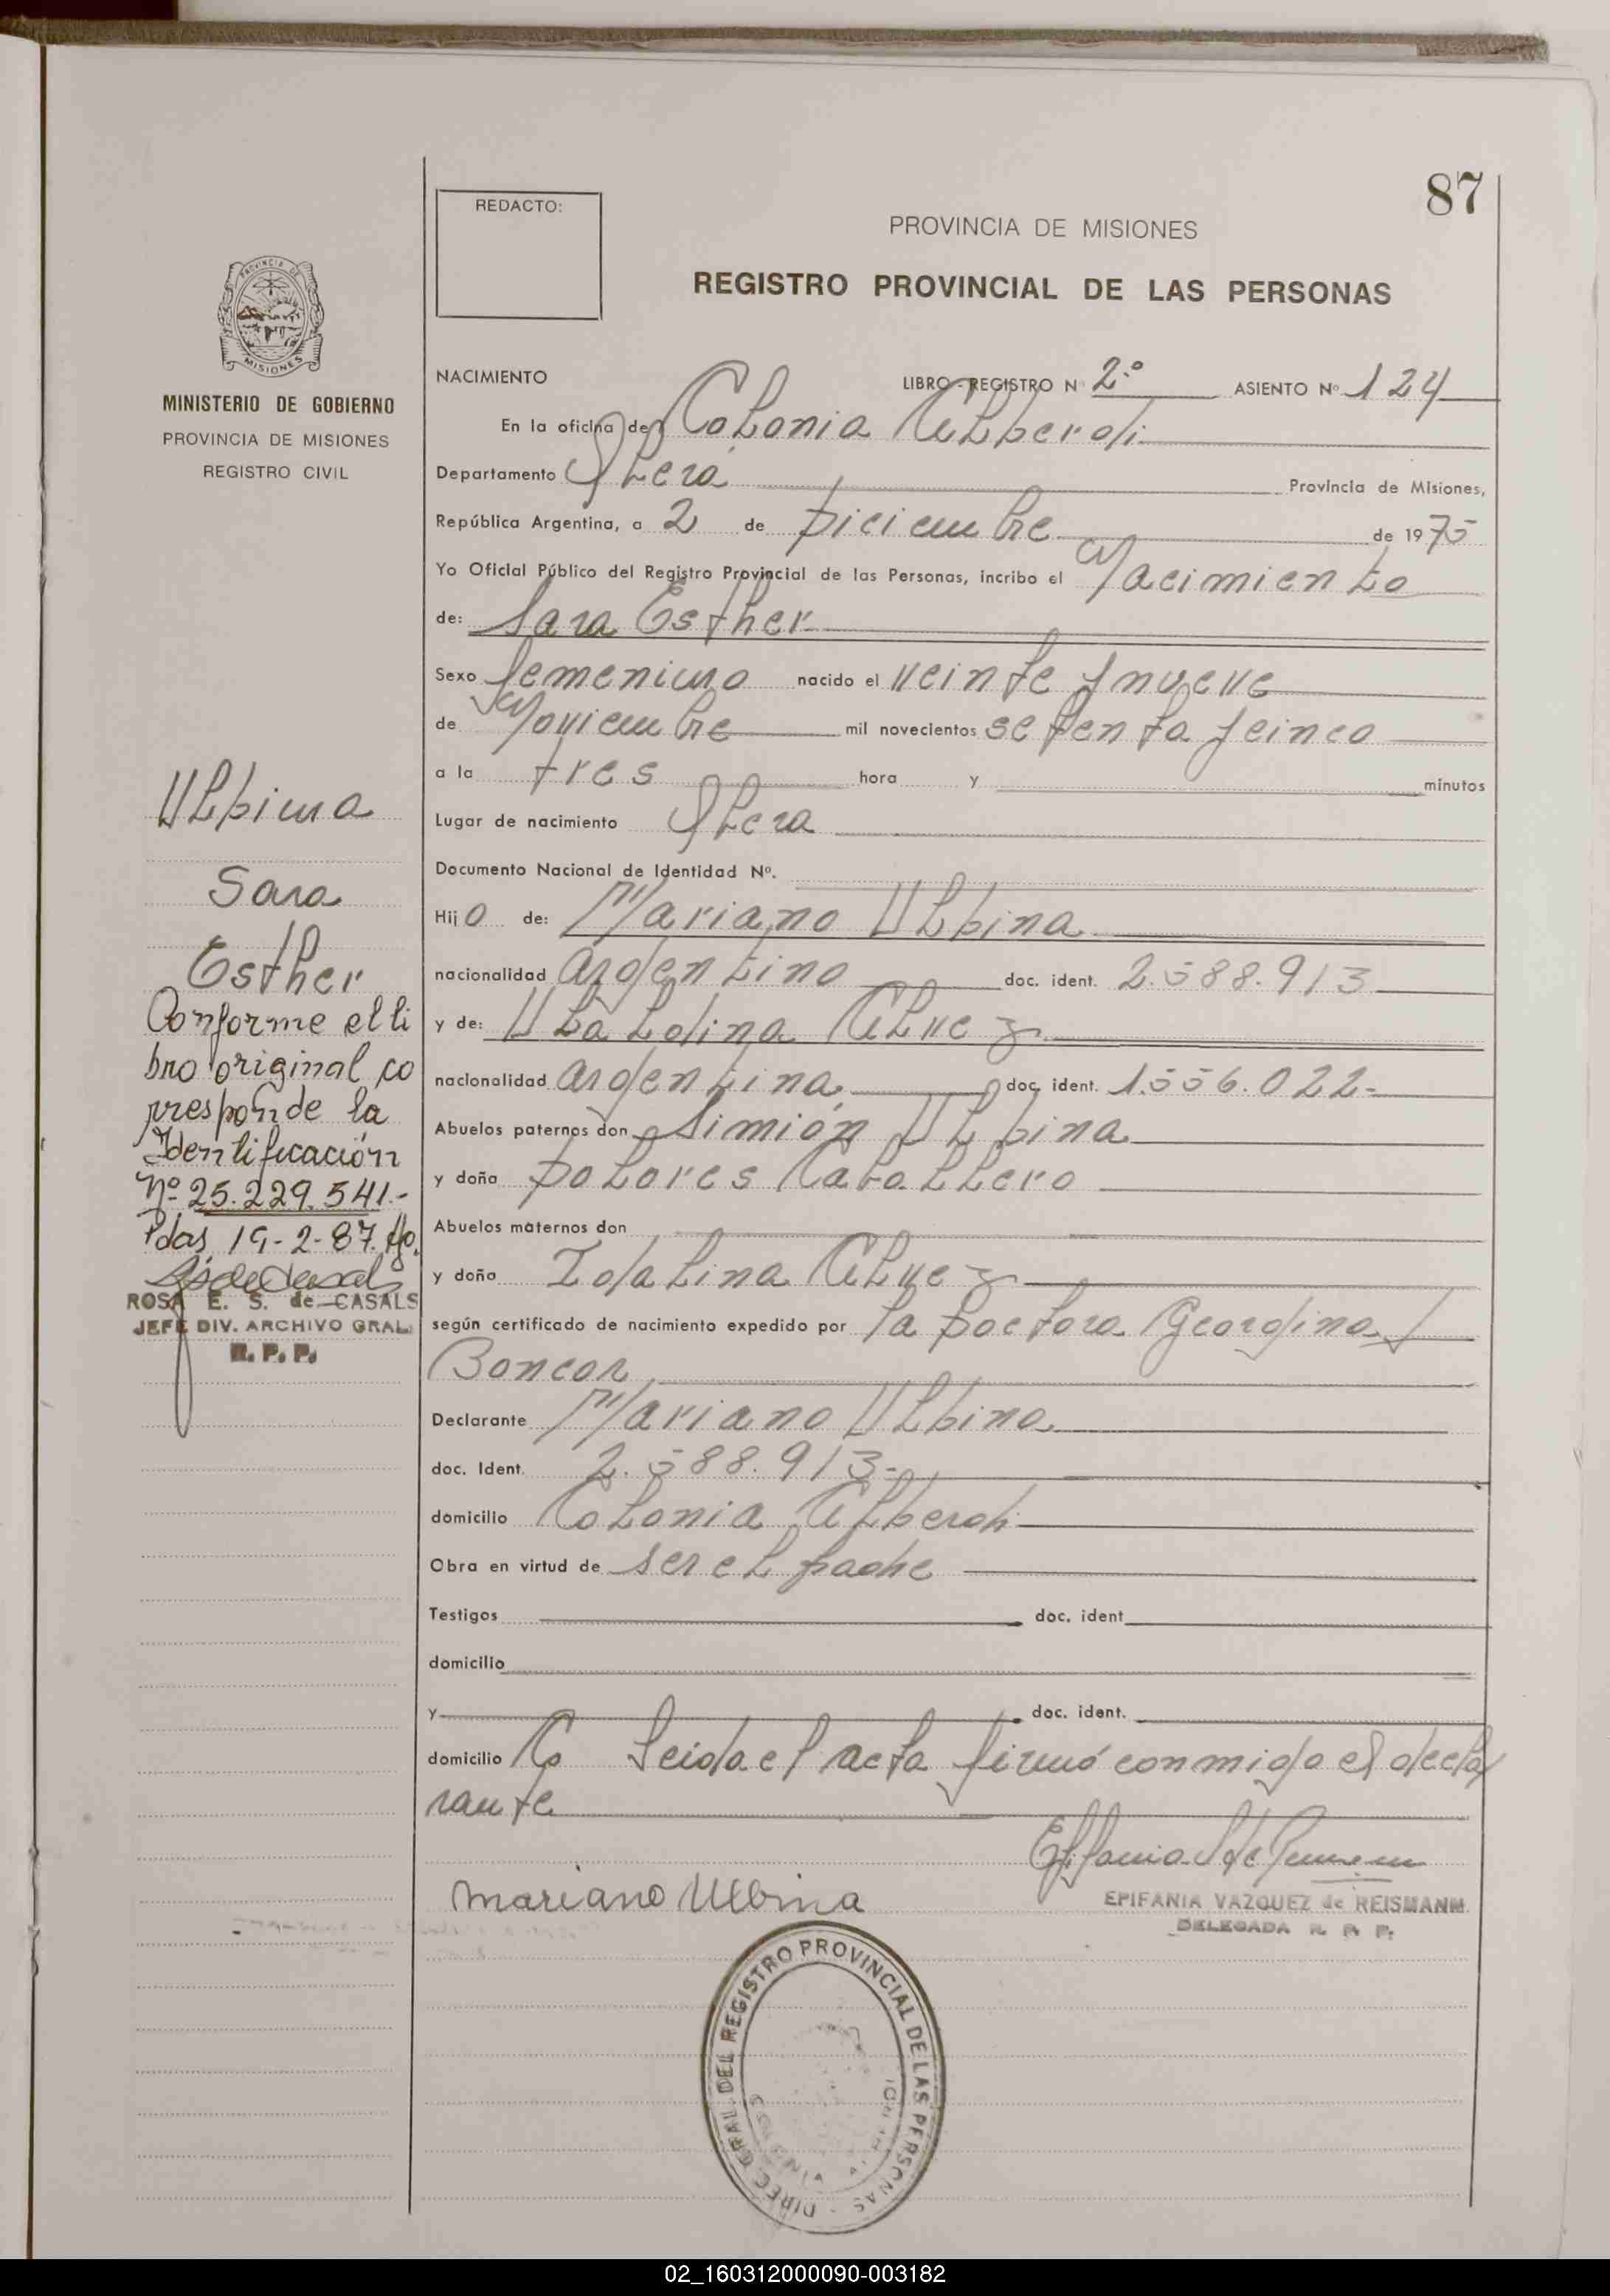 87
REDACTO:
PROVINCIA DE MISIONES
REGISTRO PROVINCIAL DE LAS PERSONAS
PROVINCIA DE
MISIONES
MINISTERIO DE GOBIERNO
PROVINCIA DE MISIONES
REGISTRO CIVIL
NACIMIENTO LIBRO - REGISTRO N° 2.° ASIENTO Nº 124
En la oficina de Colonia Alberdi
Departamento Oberá Provincia de Misiones,
República Argentina, a 2 de Diciembre de 1975
Yo Oficial Público del Registro Provincial de las Personas, incribo el Nacimiento
de: Sara Esther
Sexo femenino nacido el veinte y nueve
de Noviembre mil novecientos setenta y cinco
a la tres hora y minutos
Lugar de nacimiento Obera
Documento Nacional de Identidad Nº.
Hijo de: Mariano Albina
nacionalidad argentino doc. ident. 2.588.913
y de: Alves
nacionalidad argentina doc. ident. 1.556.022-
Abuelos paternos don Simión Albina
y doña Dolores Caballero
Abuelos maternos don
y doña Idalina Alvez
según certificado de nacimiento expedido por la Doctora Georgina J
Boncor
Declarante Mariano Albina
doc. Ident. 2.588.913-
domicilio Colonia Alberdi
Obra en virtud de ser el padre
Testigos doc. ident
domicilio
y doc. ident.
domicilio Leida el acta firmó conmigo el decla
rante
Mariano Albina
EPIFANIA VAZQUEZ de REISMANN
DELEGADA R. P. P.
DIREC. GRAL. DEL REGISTRO PROVINCIAL DE LAS PERSONAS -
Albina
Sara
Esther
Conforme el li
bro original co
rresponde la
Identificación
Nº 25.229.541.-
Pdas, 19-2-87.
ROSA E. S. de CASALS
JEFE DIV. ARCHIVO GRAL.
R. P. P.
02_160312000090-003182